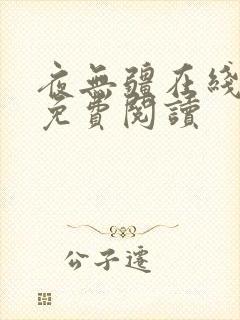 夜無疆在綫
免費閱讀
公子遷